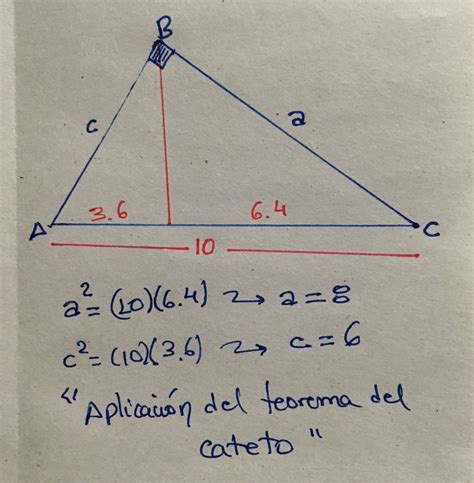 B
c
a
3.6
6.4
A
C
10
a² = (10)(6.4) → a = 8
c² = (10)(3.6) → c = 6
"Aplicación del teorema del
cateto"